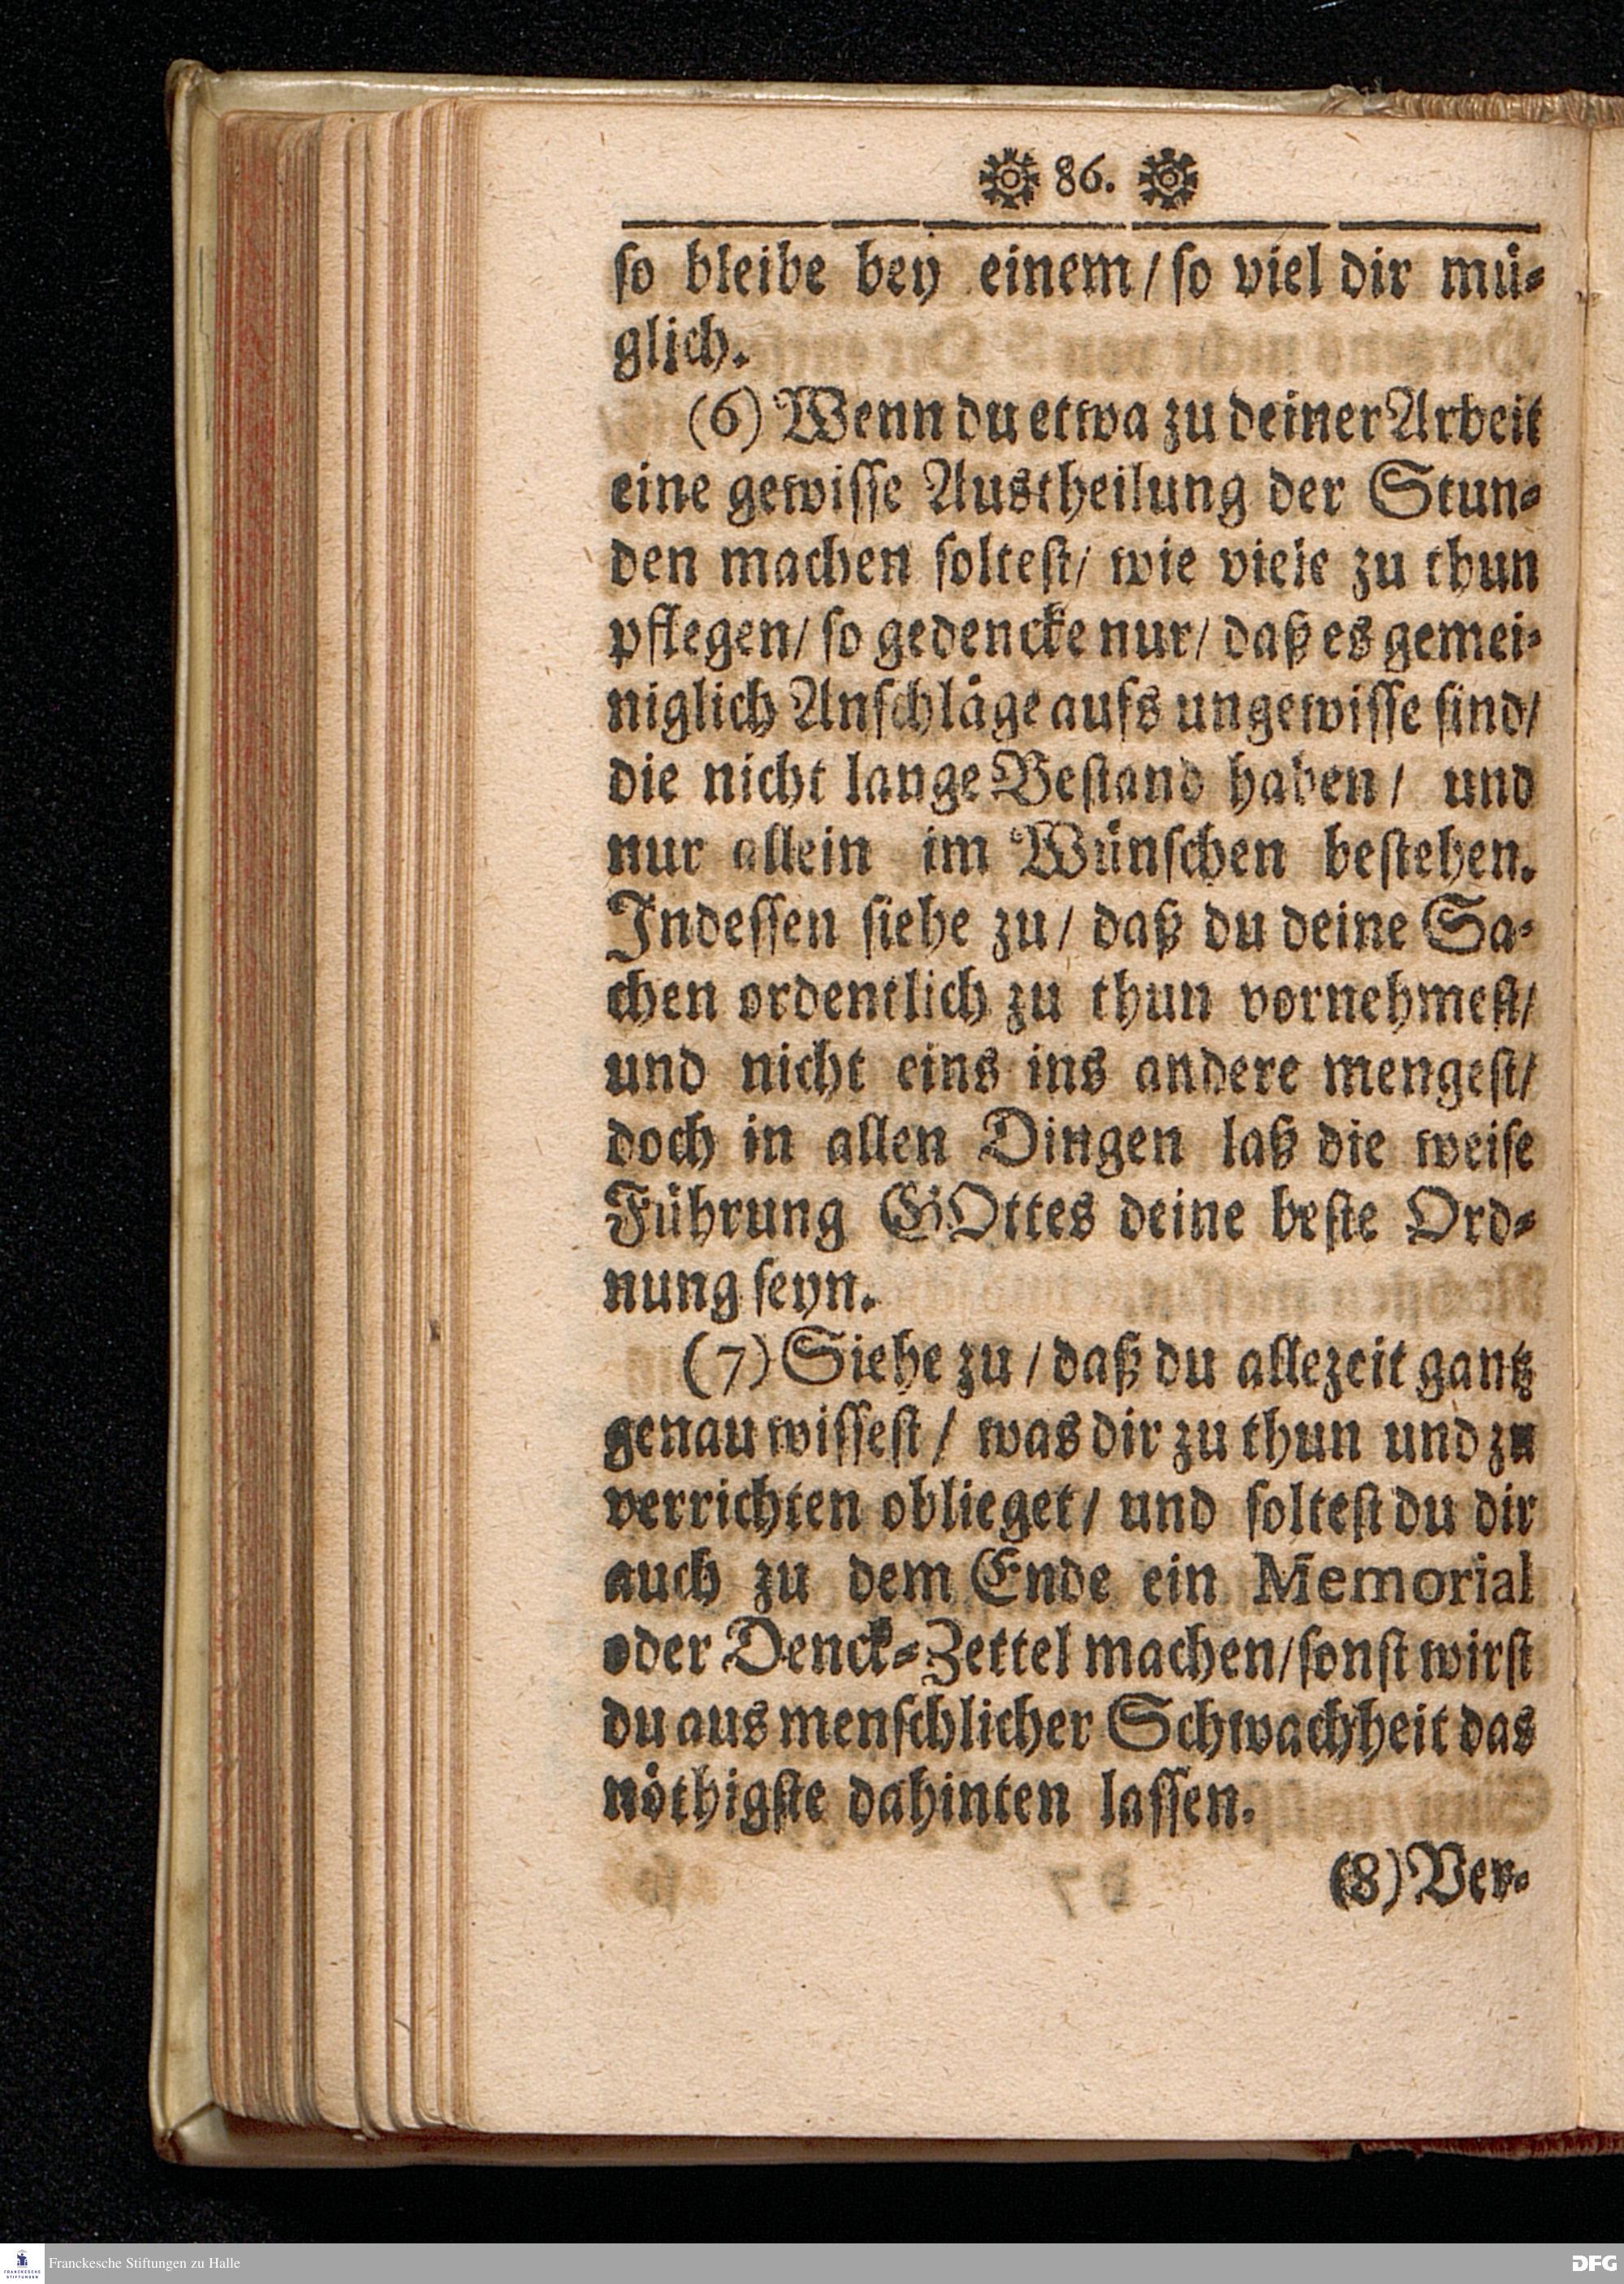 86.
so bleibe bey einem / so viel dir mü-
glich.
(6) Wenn du etwa zu deiner Arbeit
eine gewisse Austheilung der Stun-
den machen soltest / wie viele zu thun
pflegen / so gedencke nur / daß es gemei-
niglich Anschläge aufs ungewisse sind /
die nicht lange Bestand haben / und
nur allein im Wünschen bestehen.
Indessen siehe zu / daß du deine Sa-
chen ordentlich zu thun vornehmest /
und nicht eins ins andere mengest /
doch in allen Dingen laß die weise
Führung GOttes deine beste Ord-
nung seyn.
(7) Siehe zu / daß du allezeit gantz
genau wissest / was dir zu thun und zu
verrichten oblieget / und soltest du dir
auch zu dem Ende ein Memorial
oder Denck-Zettel machen / sonst wirst
du aus menschlicher Schwachheit das
nöthigste dahinten lassen.
(8) Ver-
Franckesche Stiftungen zu Halle
DFG